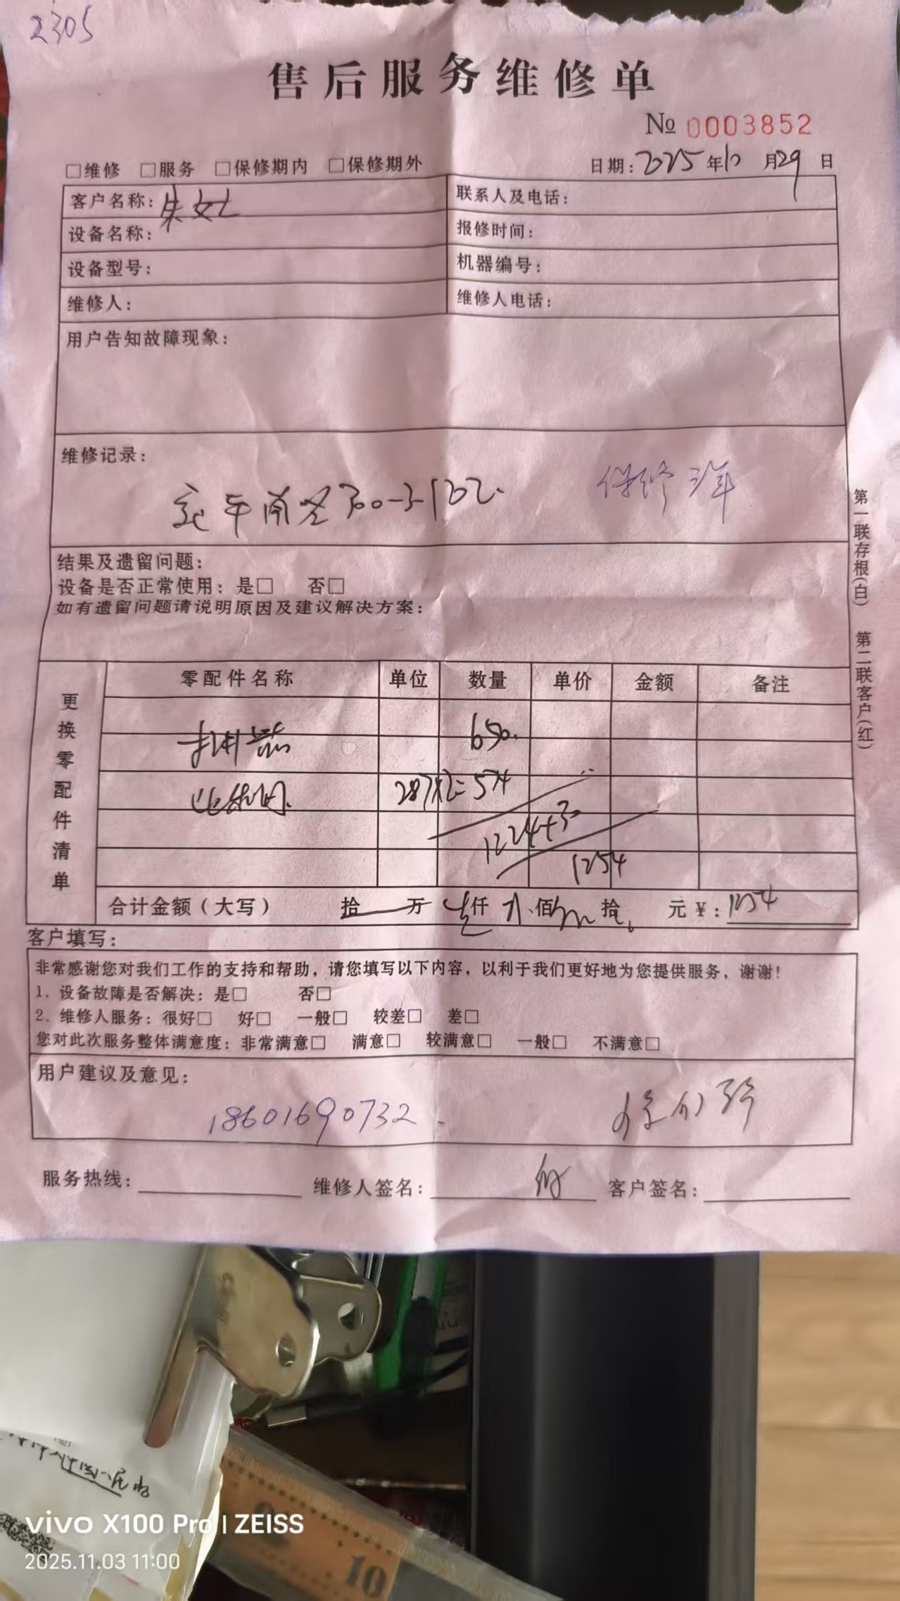 2305
售后服务维修单
№ 0003852
□维修 □服务 □保修期内 □保修期外 日期：2025年10月29日
客户名称：朱女士 联系人及电话：
设备名称： 报修时间：
设备型号： 机器编号：
维修人： 维修人电话：
用户告知故障现象：
维修记录：
保修 年
结果及遗留问题：
设备是否正常使用：是□ 否□
如有遗留问题请说明原因及建议解决方案：
更换零配件清单
零配件名称 单位 数量 单价 金额 备注
650.
287X2=574
1224+30
1254
合计金额（大写） 拾 万 仟 佰 拾 元￥：1254
客户填写：
非常感谢您对我们工作的支持和帮助，请您填写以下内容，以利于我们更好地为您提供服务，谢谢！
1、设备故障是否解决：是□ 否□
2、维修人服务：很好□ 好□ 一般□ 较差□ 差□
您对此次服务整体满意度：非常满意□ 满意□ 较满意□ 一般□ 不满意□
用户建议及意见：
18601690732
服务热线： 维修人签名： 客户签名：
第一联存根(白) 第二联客户(红)
10
vivo X100 Pro | ZEISS
2025.11.03 11:00